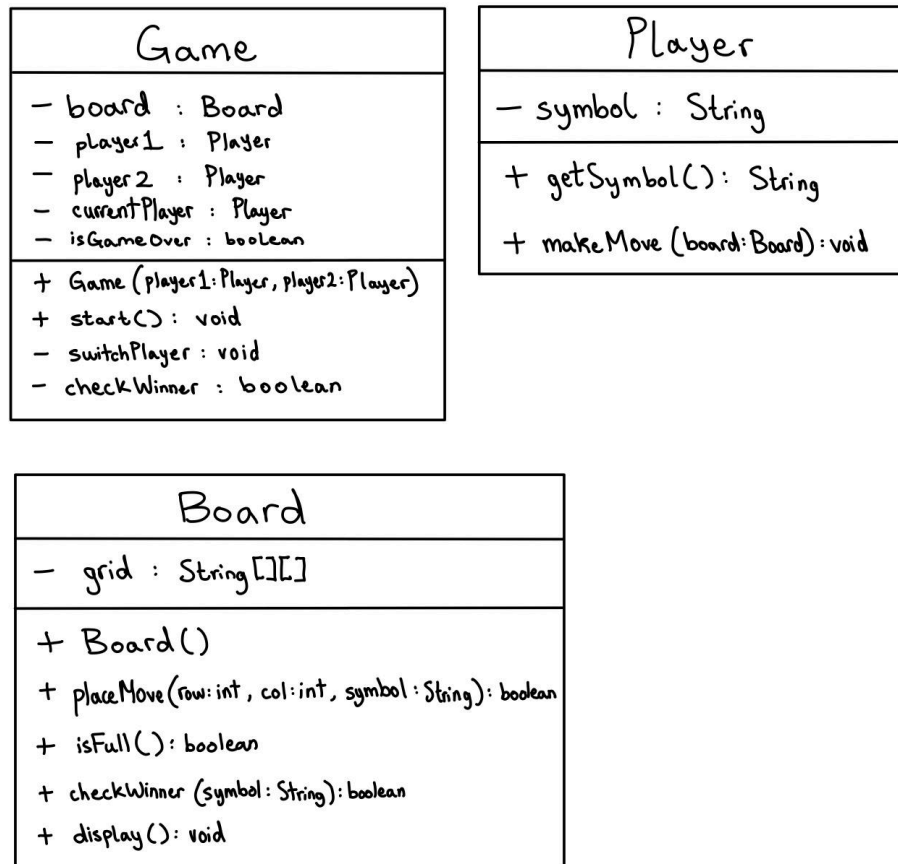 Game
- board : Board
- player1 : Player
- player2 : Player
- currentPlayer : Player
- isGameOver : boolean
+ Game (player1: Player, player2: Player)
+ start() : void
- switchPlayer : void
- checkWinner : boolean
Player
- symbol : String
+ getSymbol() : String
+ makeMove (board: Board) : void
Board
- grid : String [][]
+ Board()
+ placeMove (row: int, col: int, symbol: String) : boolean
+ isFull() : boolean
+ checkWinner (symbol: String) : boolean
+ display() : void